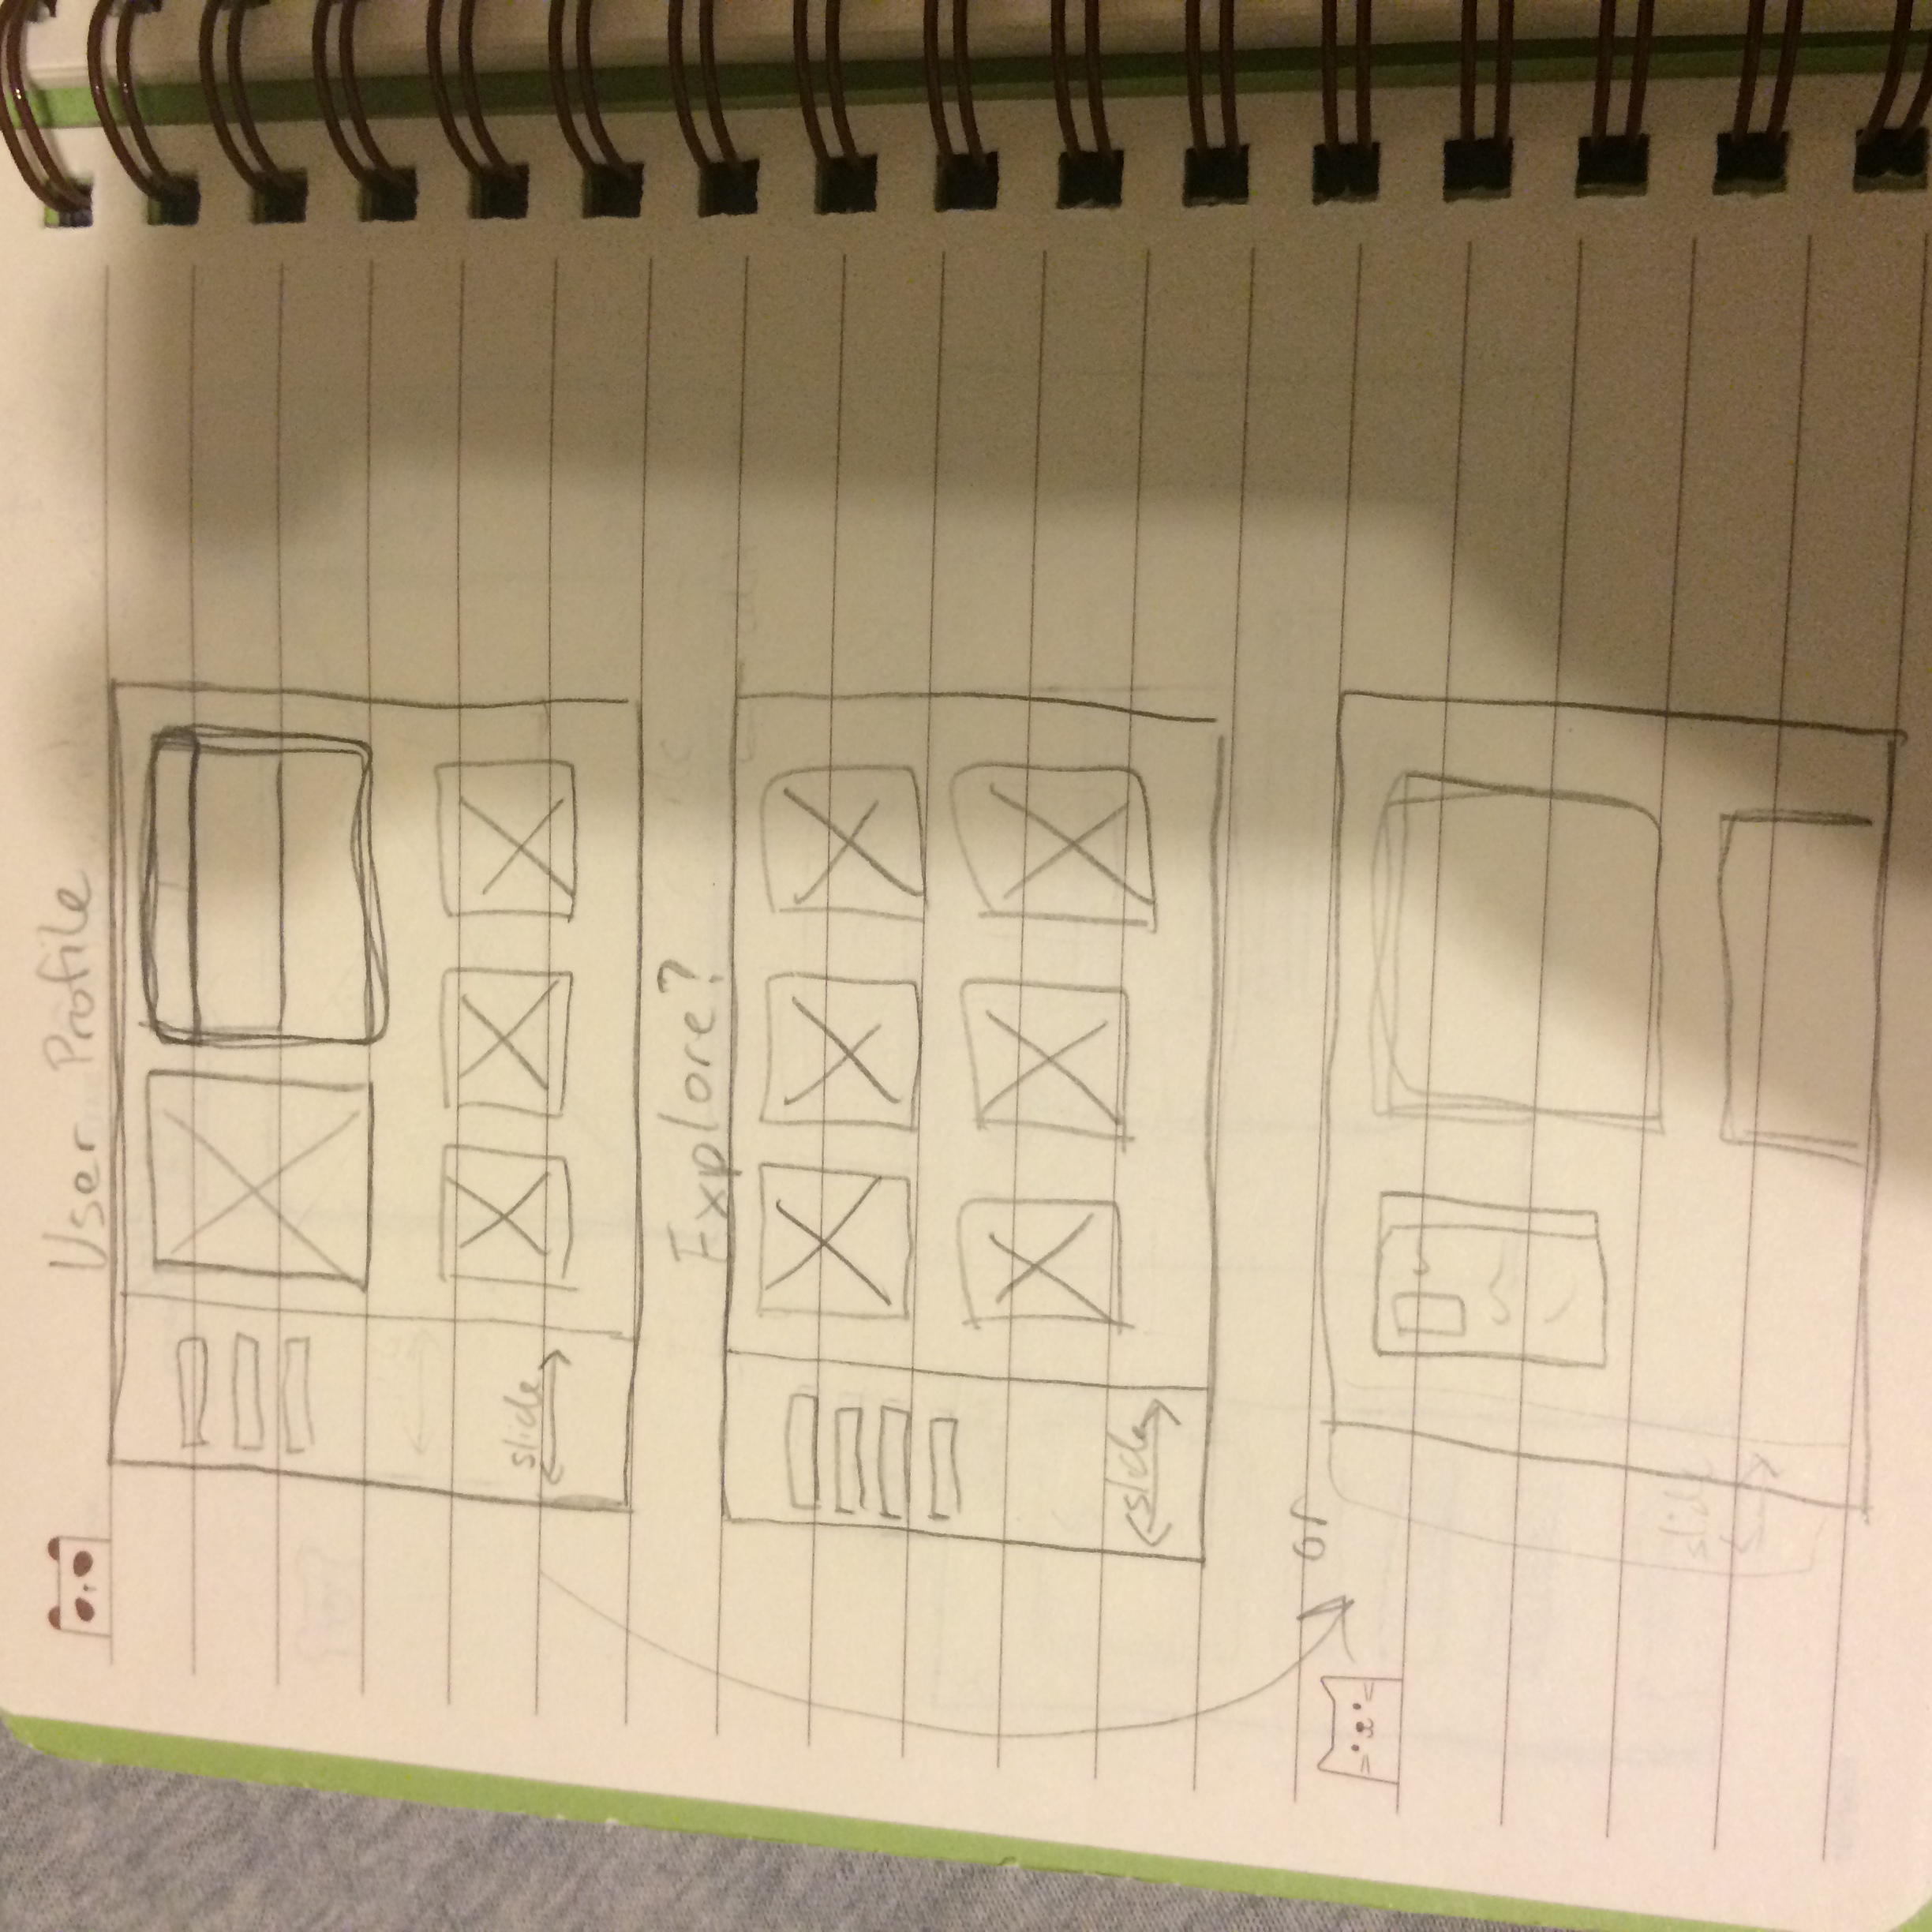 User Profile
slide
Explore?
slide
or
slide